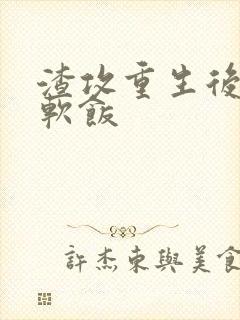 渣攻重生後
軟飯
許杰東與美食